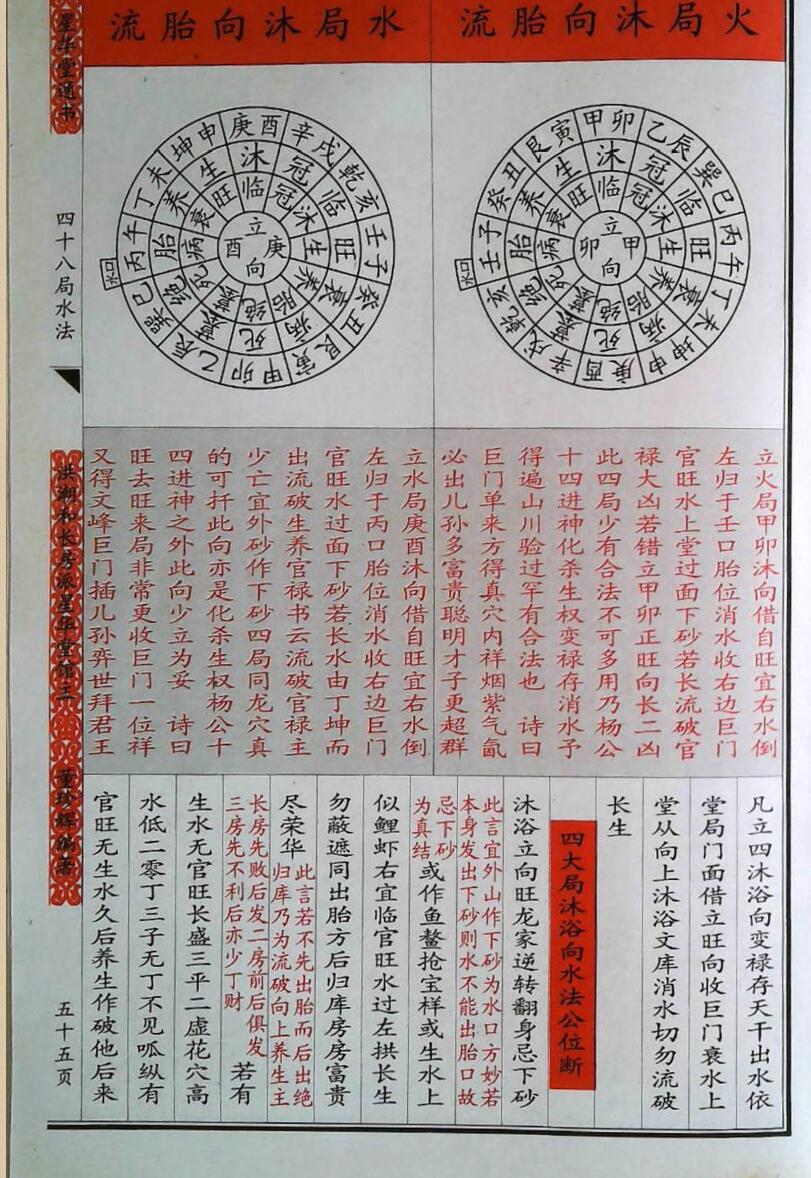 火局沐向胎流
甲卯
乙辰
巽巳
丙午
丁未
坤申
庚酉
辛戌
乾亥
壬子
癸丑
艮寅
沐
冠
临
旺
衰
病
死
墓
绝
胎
养
生
临
冠
沐
生
养
胎
绝
墓
死
病
衰
旺
立甲卯向
水口
立火局甲卯沐向借自旺宜右水倒
左归于壬口胎位消水收右边巨门
官旺水上堂过面下砂若长流破官
禄大凶若错立甲卯正旺向长二凶
此四局少有合法不可多用乃杨公
十四进神化杀生权变禄存消水予
得遍山川验过罕有合法也 诗曰
巨门单来方得真穴内祥烟紫气氤
必出儿孙多富贵聪明才子更超群
水局沐向胎流
庚酉
辛戌
乾亥
壬子
癸丑
艮寅
甲卯
乙辰
巽巳
丙午
丁未
坤申
沐
冠
临
旺
衰
病
死
墓
绝
胎
养
生
临
冠
沐
生
养
胎
绝
墓
死
病
衰
旺
立庚酉向
水口
立水局庚酉沐向借自旺宜右水倒
左归于丙口胎位消水收右边巨门
官旺水过面下砂若长水由丁坤而
出流破生养官禄书云流破官禄主
少亡宜外砂作下砂四局同龙穴真
的可扦此向亦是化杀生权杨公十
四进神之外此向少立为妥 诗曰
旺去旺来局非常更收巨门一位祥
又得文峰巨门插儿孙弈世拜君王
凡立四沐浴向变禄存天干出水依
堂局门面借立旺向收巨门衰水上
堂从向上沐浴文库消水切勿流破
长生
四大局沐浴向水法公位断
沐浴立向旺龙家逆转翻身忌下砂
此言宜外山作下砂为水口方妙若
本身发出下砂则水不能出胎口故
忌下砂
为真结
或作鱼鳌抢宝样或生水上
似鲤虾右宜临官旺水过左拱长生
勿蔽遮同出胎方后归库房房富贵
尽荣华
此言若不先出胎而后出绝
归库乃为流破向上养生主
长房先败后发二房前后俱发
三房先不利后亦少丁财
若有
生水无官旺长盛三平二虚花穴高
水低二零丁三子无丁不见呱纵有
官旺无生水久后养生作破他后来
星华堂通书
四十八局水法
洪潮和长房派星华堂馆主
董珍辉编著
五十五页